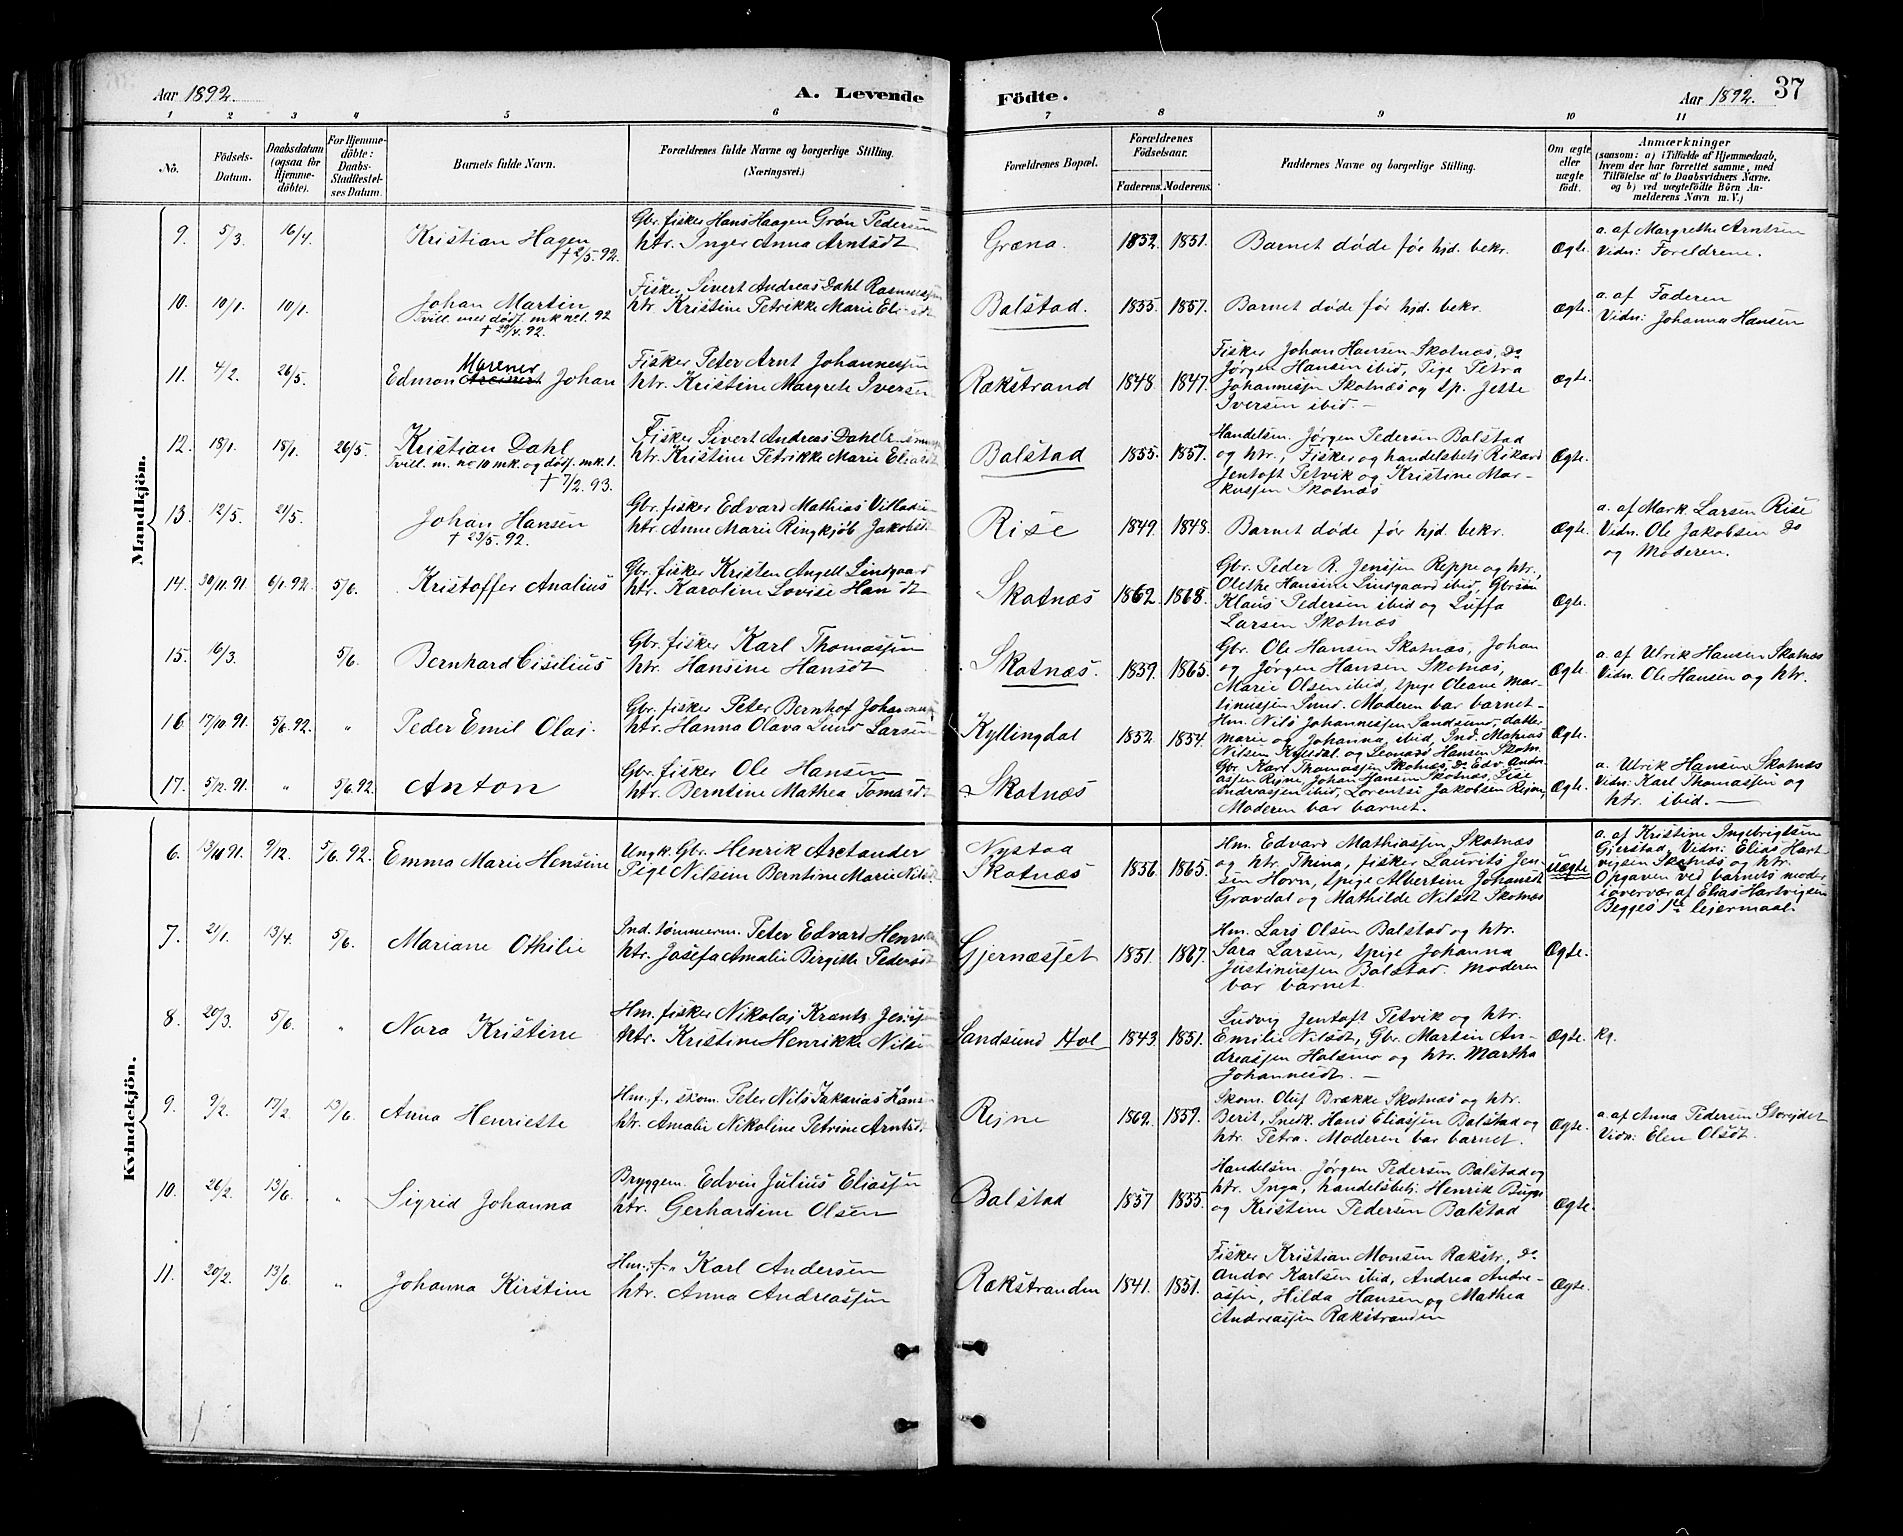 Aar 1892.
A. Levende
Födte.
Aar 1892.
37
1 2 3 4 5 6 7 8 9 10 11
No.
Födsels-
Datum.
Daabsdatum
(ogsaa for
Hjemme-
döbte).
For Hjemme-
döbte:
Daabs-
Stadfæstel-
ses Datum.
Barnets fulde Navn.
Forældrenes fulde Navne og borgerlige Stilling.
(Næringsvei.)
Forældrenes Bopæl.
Forældrenes
Födselsaar.
Faderens. Moderens.
Faddernes Navne og borgerlige Stilling.
Om ægte
eller
uægte
födt.
Anmærkninger
(saasom: a) i Tilfælde af Hjemmedaab,
hvem der har forrettet samme, med
Tilföielse af to Daabsvidners Navne,
og b) ved uægtefödte Börn An-
melderens Navn m. V.)
Mandkjön.
9. 5/3. 16/4. Kristian Hagen
† 2/5. 92.
Gbr. fisker Hans Haagen Grøn Pedersen
htr. Inger Anna Arntsdt
Græna. 1852. 1851. Barnet døde før hjd. bekr. Ægte.
a. af Margrethe Arntsen
Vidn: Foreldrene.
10. 10/1. 10/1. Johan Martin
Tvill. med dødf. mk no 1. 92
† 29/4. 92.
Fisker Sivert Andreas Dahl Rasmussen
htr. Kristine Petrikke Marie
Balstad. 1855. 1857. Barnet døde før hjd. bekr. Ægte.
a. af Faderen
Vidn: Johanna Hansen
11. 4/2. 26/5. Edmon Marener Johan
Fisker Peter Arnt Johannessen
htr. Kristine Margrete Iversen
Rækstrand 1848. 1847.
Fisker Johan Hansen Skotnæs, do
Jørgen Hansen ibid, Pige Petra
Johannessen Skotnæs og sp. Jette
Iversen ibid. —
Ægte.
12. 18/1. 18/1. 26/5. Kristian Dahl
Tvill. m. no 10 mk. og dødf. mk. 1.
† 7/2. 93.
Fisker Sivert Andreas Dahl
htr. Kristine Petrikke Marie Eliasdt
Balstad 1855. 1857.
Handelsm. Jørgen Pedersen Balstad
og htr., Fisker og handelsbetj Rikard
Jentoft Petvik og Kristine Mar-
kussen Skotnæs
Ægte.
13. 12/5. 21/5. Johan Hansen
† 23/5. 92.
Gbr. fisker Edvard Mathias Villadsen
htr. Anne Marie Ringkjøb Jakobsdt
Rise 1849. 1848. Barnet døde før hjd. bekr. Ægte.
a. af Mark. Larsen Rise
Vidn. Ole Jakobsen do
og Moderen.
14. 30/11. 91. 6/1. 92. 5/6. Kristoffer Analius
Gbr. fisker Kristen Angell Lindgaard
htr. Karoline Lovise Hansdt
Skotnæs 1862. 1868.
Gbr. Peder R. Jenssen Reppe og htr.,
Olethe Hansine Lindgaard ibid, Gbrsøn
Klaus Pedersen ibid og Luffa
Larsen Skotnæs
Ægte.
15. 16/3. 5/6. Bernhard Cisilius
Gbr. fisker Karl Thomassen
htr. Hansine Hansdt
Skotnæs. 1859. 1865.
Gbr. Ole Hansen Skotnæs, Johan
og Jørgen Hansen Skotnæs,
Marie Olsen ibid, spige Oleane Mar-
tinussen Sund. Moderen bar barnet.
Ægte.
a. af Ulrik Hansen Skotnæs
Vidn: Ole Hansen og htr.
16. 17/10. 91. 5/6. 92. " Peder Emil Olai
Gbr. fisker Peter Bernhof Johannessen
htr. Hanna Olava Lund Larsen
Kyllingdal 1852. 1854.
Hm. Nils Johannessen Sandsund, datter
Marie og Johanna, ibid, Ind. Mathias
Nilsen Kylldal. og Leonard Hansen Skotn.
Ægte.
17. 5/12. 91. " 5/6. 92. Anton
Gbr. fisker Ole Hansen
htr. Berntine Mathea Tomasdt
Skotnæs
Gbr. Karl Thomassen Skotnæs, do Edv. Andre-
assen Rejne, Johan Hansen Skotnæs, Lise
Andreassen ibid, Lorentse Jakobsen Rejne,
Moderen bar barnet.
Ægte.
a. Ulrik Hansen Skotnæs
Vidn: Karl Thomassen og
htr. ibid. —
Kvindekjön.
6. 91. 9/12. 5/6. 92. Emma Marie Hensine
Ungk. Gbr. Henrik Arctander
Pige Nilsine Berntine Marie Nilsdt
Nystaa
Skotnæs 1856. 1865.
Hm. Edvard Mathiassen Skotnæs
og htr. Thina, fisker Laurits Jen-
sen Horn, spige Albertine Johansdt
Gravdal og Mathilde Nilsdt Skotnæs
uægte
a. af Kristine Ingebrigtsen
Gjerstad. Vidn: Elias Hart-
vigsen Skotnæs og htr.
Opgaven ved barnets moder
i overvær af Elias Hartvigsen
Begges 1ste lejermaal.
7. 21/1. 13/4. 5/6. Mariane Othilie
Ind. tømmerm. Peter Edvard
htr. Josefa Amalie Birgitte Pedersdt
Gjernæsset 1851. 1867.
Hm. Lars Olsen Balstad og htr.
Sara Larsen, spige Johanna
Justinussen Balstad. Moderen
bar barnet.
Ægte.
8. 20/3. 5/6. " Nora Kristine
Hm. fisker Nikolai Krantz Jenssen
htr. Kristine Henrikke Nilsen
Sandsund Hol 1843. 1851.
Ludvig Jentoft Petvik og htr.
Emilie Nilsdt, Gbr. Martin An-
dreassen Holsmo og htr. Martha
Johannesdt. —
Ægte. Kg.
9. 9/2. 17/2. 13/6. Anna Henriette
Hm. f., skom. Peter Nils Zakarias Hansen
htr. Amalie Nikoline Petrine Arntsdt
Rejne 1862. 1857.
Skom. Oluf Brække Skotnæs og htr.
Berit, Snedk. Hans Eliassen Balstad og
htr. Petra. Moderen bar barnet.
Ægte.
a. af Anna Pedersen Storejdet
Vidn: Elen Olsdt.
10. 26/2. 13/6. " Sigrid Johanna
Bryggem. Edvin Julius Eliassen
htr. Gerhardine Olsen
Balstad 1857 1855.
Handelsm. Jørgen Pedersen Balstad og
htr. Inga, handelsbetj. Henrik Bugge
og Kristine Pedersen Balstad
Ægte.
11. 20/2. 13/6. " Johanna Kirstine
Hm., f. Karl Andersen
htr. Anna Andreassen
Rækstranden 1841. 1851.
Fisker Kristian Monsen Rækstr., do
Andor Karlsen ibid, Andrea Andre-
assen, Hilda Hansen og Mathea
Andreassen Rækstranden
Ægte.